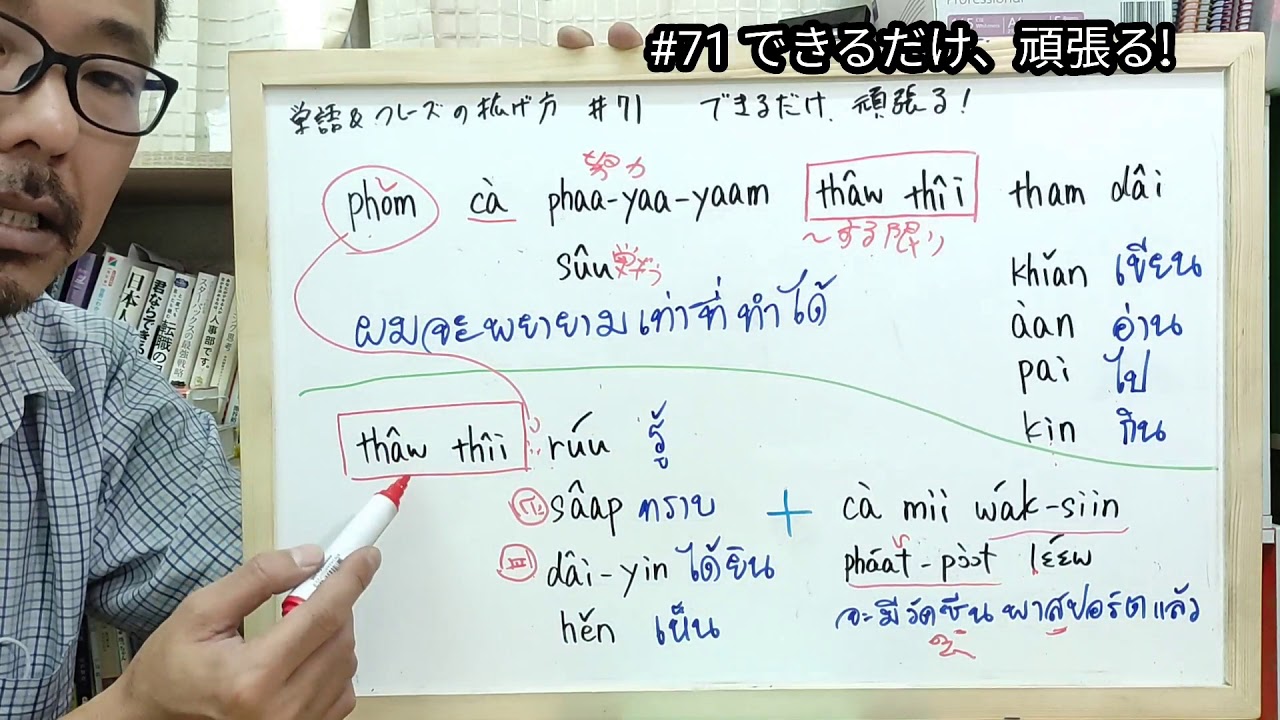 #71 できるだけ、頑張る!
単語&フレーズの拡げ方 #71 できるだけ、頑張る!
努力
phǒm cà phaa-yaa-yaam thâw thîi tham dâi
〜する限り
sûu
khǐan เขียน
ผมจะพยายามเท่าที่ทำได้
àan อ่าน
pai ไป
kin กิน
thâw thîi rúu รู้
sâap ทราบ + cà mii wák-siin
dâi-yin ได้ยิน pháat-pɔ̀ɔt lɛ́ɛw
hěn เห็น จะมีวัดซีน พาสปอร์ตแล้ว
日本人
君ならできる
転職の
スターバックスの最強戦略
人事部です。